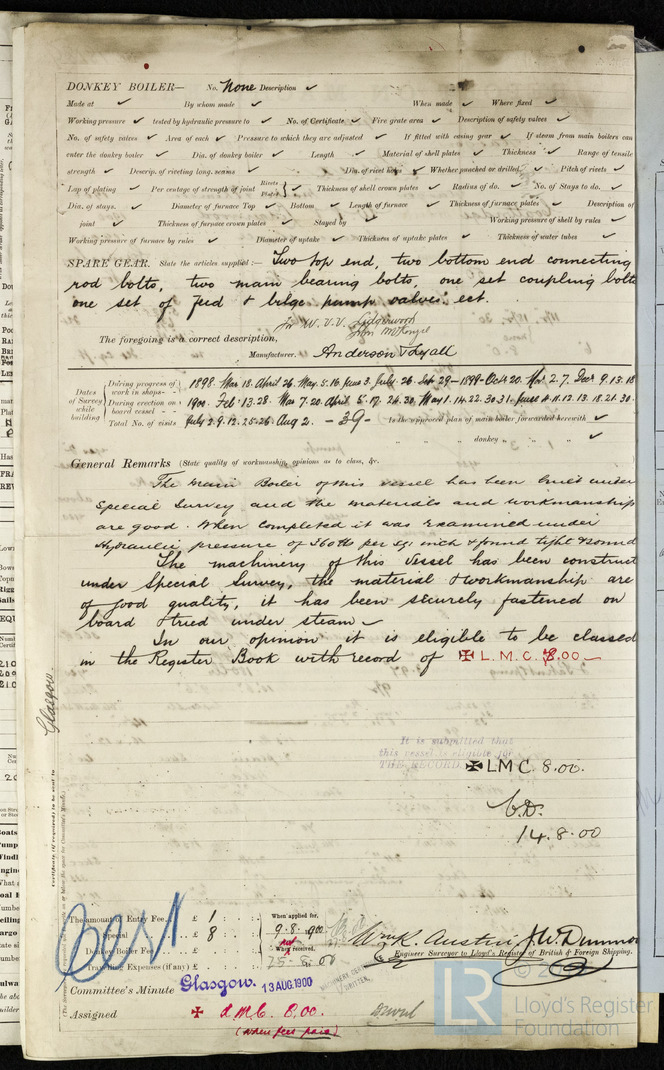 DONKEY BOILER— No. None Description ✓
Made at ✓ By whom made ✓ When made ✓ Where fixed ✓
Working pressure ✓ tested by hydraulic pressure to ✓ No. of Certificate ✓ Fire grate area ✓ Description of safety valves ✓
No. of safety valves ✓ Area of each ✓ Pressure to which they are adjusted ✓ If fitted with easing gear ✓ If steam from main boilers can
enter the donkey boiler ✓ Dia. of donkey boiler ✓ Length ✓ Material of shell plates ✓ Thickness ✓ Range of tensile
strength ✓ Descrip. of riveting long. seams ✓ Dia. of rivet holes ✓ Whether punched or drilled ✓ Pitch of rivets ✓
Lap of plating ✓ Per centage of strength of joint Rivets Plates ✓ Thickness of shell crown plates ✓ Radius of do. ✓ No. of Stays to do. ✓
Dia. of stays. ✓ Diameter of furnace Top ✓ Bottom ✓ Length of furnace ✓ Thickness of furnace plates ✓ Description of
joint ✓ Thickness of furnace crown plates ✓ Stayed by ✓ Working pressure of shell by rules ✓
Working pressure of furnace by rules ✓ Diameter of uptake ✓ Thickness of uptake plates ✓ Thickness of water tubes ✓
SPARE GEAR. State the articles supplied:— Two top end, two bottom end connecting
rod bolts, two main bearing bolts, one set coupling bolts
one set of feed & bilge pump valves, ect.
The foregoing is a correct description,
Manufacturer. Anderson & Lyall
Dates of Survey while building
During progress of work in shops-- 1898. Mar 18. April 26. May. 5. 16. June 3. July. 26. Sep 29 — 1899 - Oct 20. Nov. 2. 7. Dec 9. 13. 18
During erection on board vessel -- 1900. Feb 13. 28. Mar 7. 20. April 5. 17. 24. 30. May 1. 14. 22. 30. 31. June 4. 11. 12. 13. 18. 21. 30.
Total No. of visits July 2. 9. 12. 25. 26. Aug 2. — 39 — Is the approved plan of main boiler forwarded herewith ✓
" " donkey " " " ✓
General Remarks (State quality of workmanship, opinions as to class, &c.
The main Boiler of this vessel has been built under
Special Survey and the materials and workmanship
are good. When completed it was examined under
Hydraulic pressure of 360 lbs per sq: inch & found tight & sound
The machinery of this Vessel has been construct
under Special Survey, the material & workmanship are
of good quality, it has been securely fastened on
board & tried under steam
In our opinion it is eligible to be classed
in the Register Book with record of ✠ L. M. C. 8.00
It is submitted that
this vessel is eligible for
THE RECORD. ✠ LMC. 8.00.
14.8.00
Glasgow.
Certificate (if required) to be sent to
The amount of Entry Fee.. £ 1 : : When applied for,
Special £ 8 : : 9.8.1900
Donkey Boiler Fee £ : : When received,
Travelling Expenses (if any) £ : :
Wm. K. Austin, J. W. Dimmock
Engineer Surveyor to Lloyd's Register of British & Foreign Shipping.
Committee's Minute Glasgow. 13 AUG. 1900
Assigned ✠ L.M.C. 8.00.
(when fees paid)
LR
Lloyd's Register
Foundation